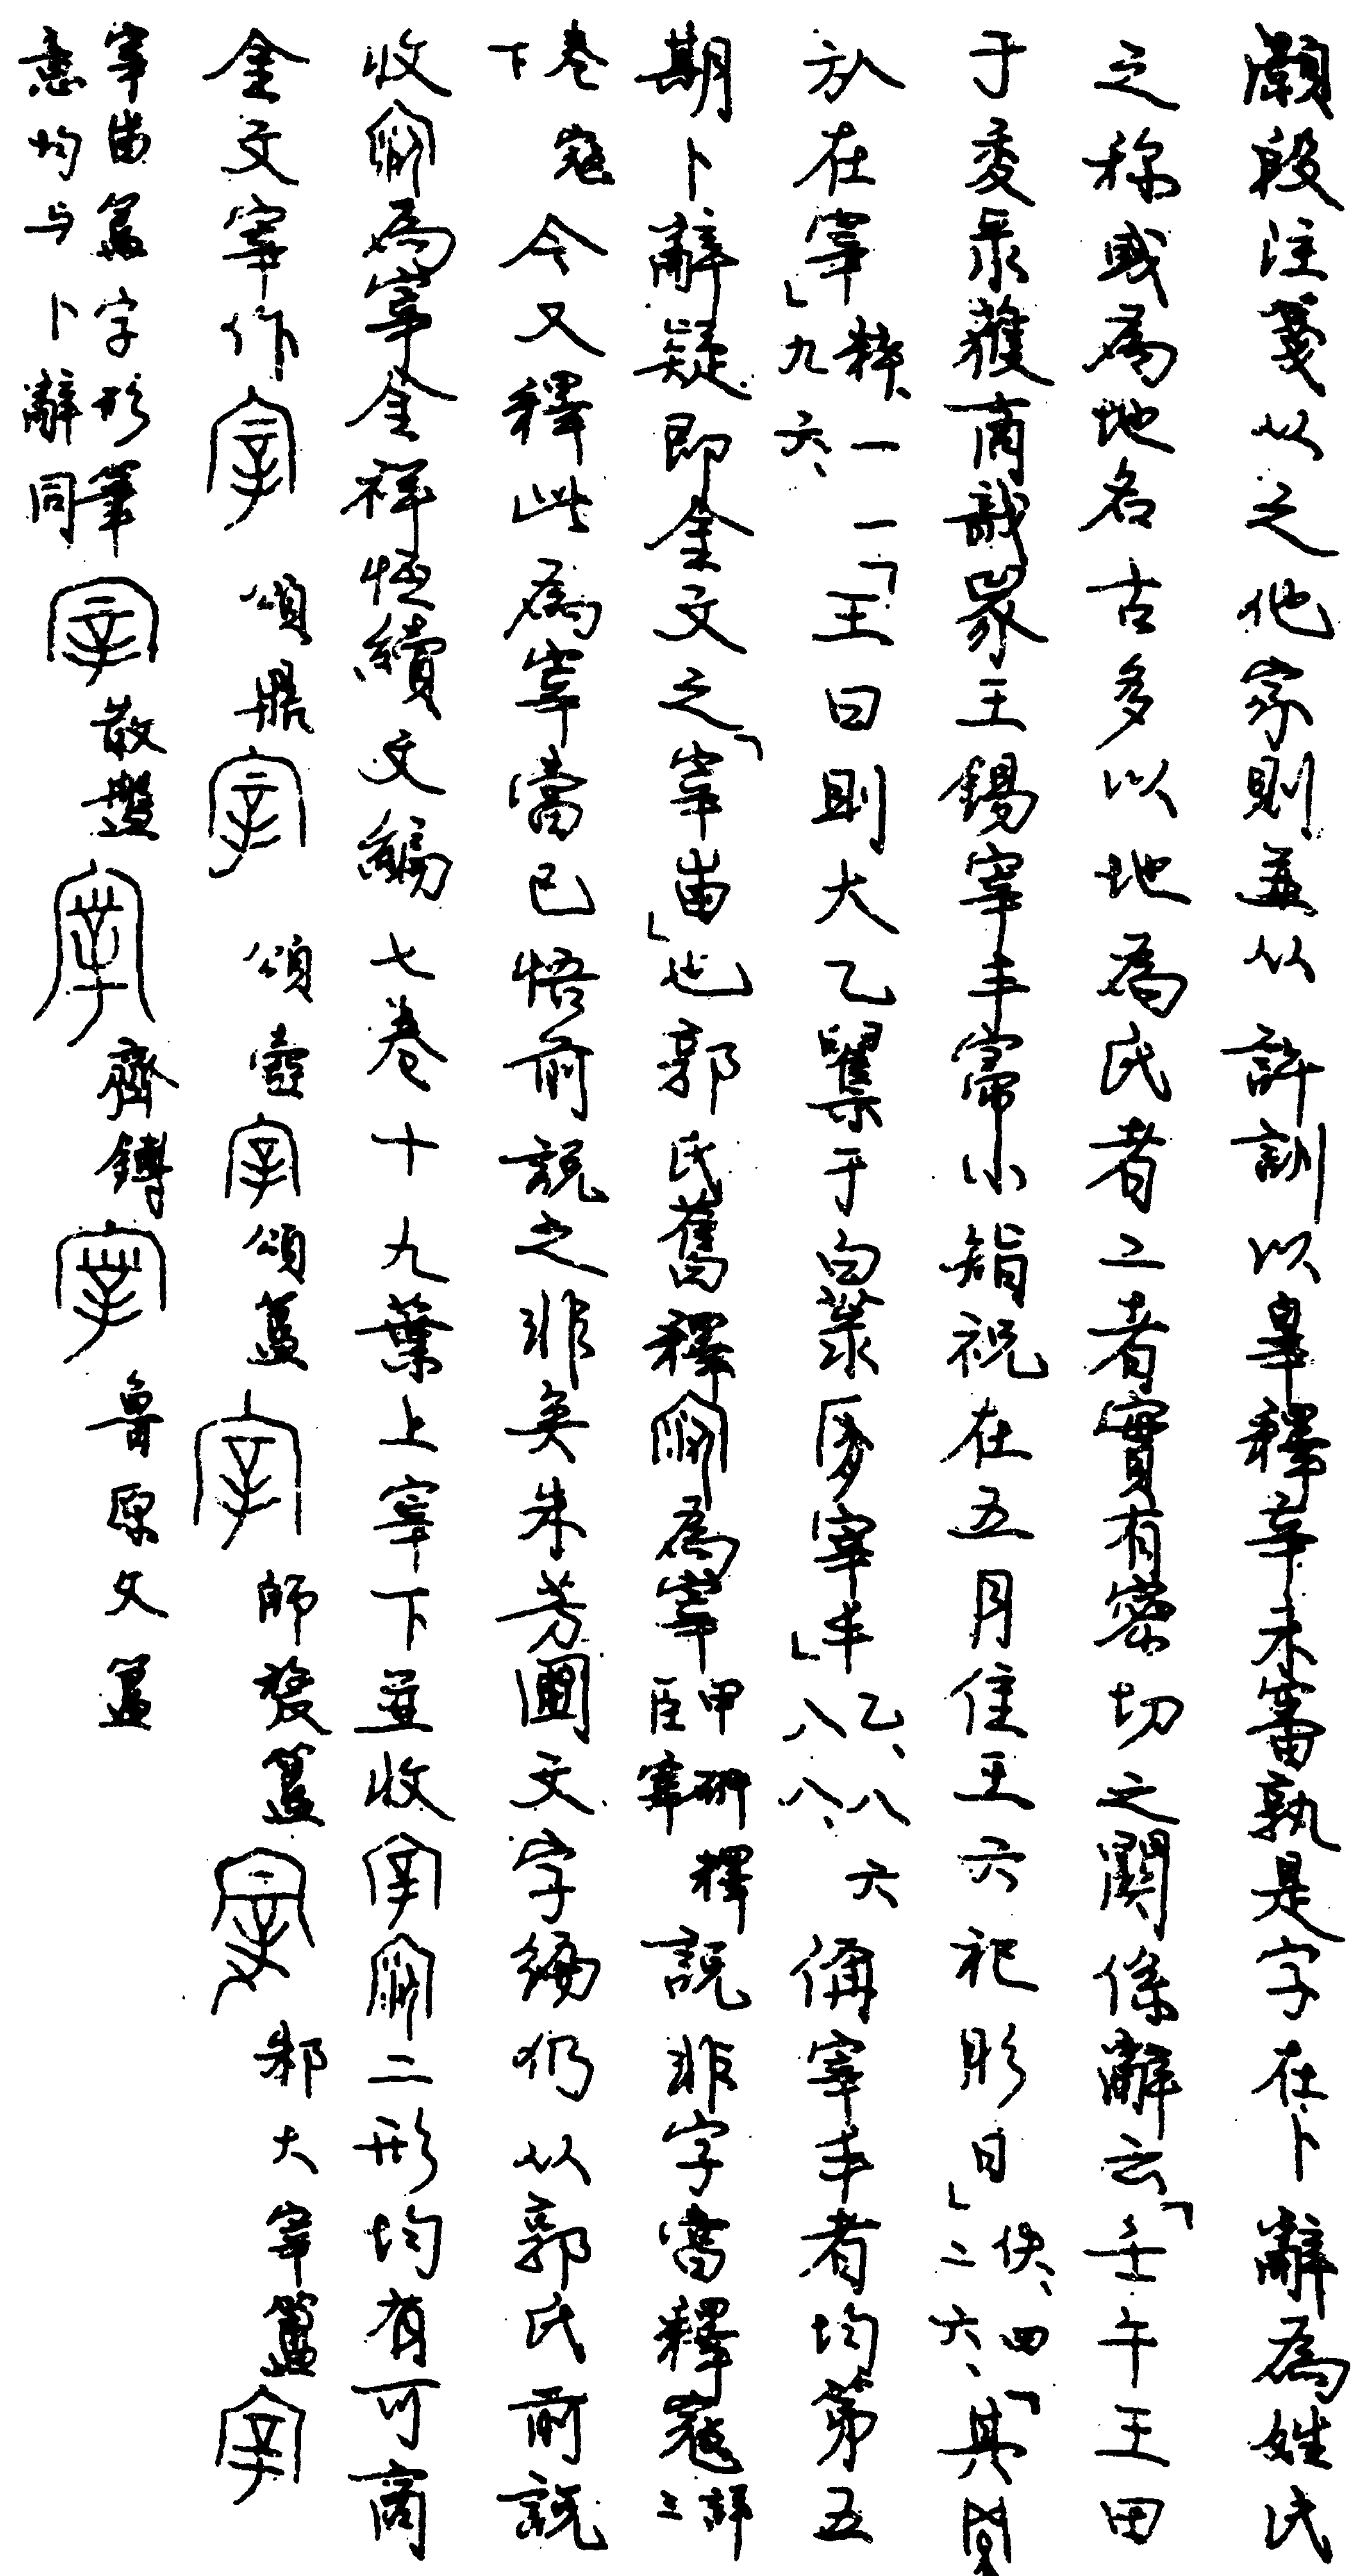 顧段注箋以之他家則並从許訓以辠釋辛未審孰是字在卜辭為姓氏
之称或為地名古多以地為氏者二者實有密切之関係辭云「壬午王田
于麥彔獲商戠𤉡王錫宰丰寑小𥎿祝在五月隹王六祀肜日」佚、四二六、「其
㫃在宰」粹、一一九六、「王曰則大乙于白彔宰丰」乙、八六八八、偁宰丰者均第五
期卜辭疑即金文之「宰甾」也郭氏舊釋為宰甲研釋臣宰說非字當釋寇詳三
卷寇下今又釋此為宰當已悟前説之非矣朱芳圃文字編仍从郭氏前説
收為宰金祥恆續文編七卷十九葉上宰下並收二形均有可商
金文宰作頌鼎頌壺頌簋師㝨簋邾大宰簠
宰甾簋字形筆意均与卜辭同散盤齊鎛魯原父簋